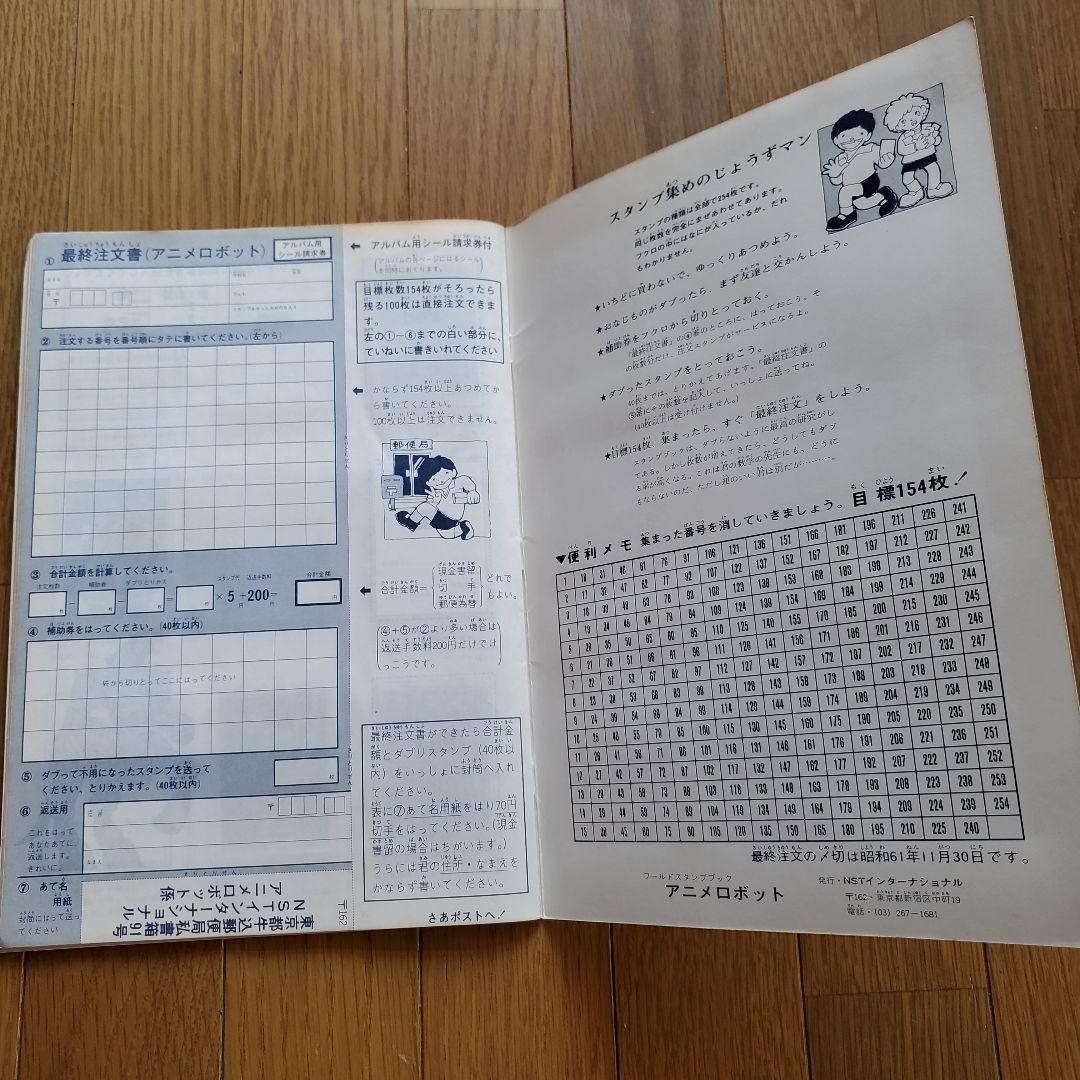 ① 最終注文書(アニメロボット)
アルバム用
シール請求券
〒
② 注文する番号を番号順にタテに書いてください。(左から)
③ 合計金額を計算してください。
注文枚数
補助券
ダブりとりかえ
スタンプ代
返送手数料
合計金額
枚
枚
枚
枚
×5円+200円=
円
④ 補助券をはってください。(40枚以内)
袋から切りとってここにはってください
⑤ ダブって不用になったスタンプを送って
ください、とりかえます。(40枚以内)
枚
⑥ 返送用
これをはって
あなたあてに、
返送します。
きれいに。
〒
⑦ あて名
用紙
封筒にはって送っ
てください
〒162
東京都牛込郵便局私書箱91号
NSTインターナショナル
アニメロボット係
← アルバム用シール請求券付
(アルバムの各ページにはるシール
を同時におくります。)
目標枚数154枚がそろったら
残る100枚は直接注文できま
す。
左の①~⑥までの白い部分に、
ていねいに書きいれてください
← かならず154枚以上あつめてか
ら書いてください。
100枚以上は注文できません。
郵便局
← 合計金額=
現金書留
切手
郵便為替
どれで
もよい。
(④+⑤が②より多い場合は)
返送手数料200円だけでけ
っこうです。
最終注文書ができたら合計金
額とダブリスタンプ(40枚以
内)をいっしょに封筒へ入れ
てください。
表に⑦あて名用紙をはり70円
切手をはってください。(現金
書留の場合はちがいます。)
うらには君の住所・なまえを
かならず書いてください。
さあポストへ!
スタンプ集めのじょうずマン
スタンプの種類は全部で254枚です。
同じ枚数を完全にまぜあわせてあります。
フクロの中にはなにが入っているか、だれ
もわかりません。
★いちどに買わないで、ゆっくりあつめよう。
★おなじものがダブったら、まず友達と交かんしよう。
★補助券をフクロから切りとっておく。
「最終注文書」の④番のところに、はっておこう。そ
の枚数分だけ、注文スタンプがサービスになるよ。
★ダブったスタンプをとっておこう。
40枚までは、とりかえてあげます。「最終注文書」の
⑤番にその枚数を記入して、いっしょに送ってね。
(40枚以上は受け付けません。)
★目標154枚、集まったら、すぐ「最終注文」をしよう。
スタンプブックは、ダブらないように最高の研究がし
てある。しかし枚数が増えてきたら、どうしてもダブ
る率が高くなる。これは君の数学の先生にも、どうに
もならないのだ、ただし運のいい君は別だが………。
▼便利メモ 集まった番号を消していきましょう。目標154枚!
1 16 31 46 61 76 91 106 121 136 151 166 181 196 211 226 241
2 17 32 47 62 77 92 107 122 137 152 167 182 197 212 227 242
3 18 33 48 63 78 93 108 123 138 153 168 183 198 213 228 243
4 19 34 49 64 79 94 109 124 139 154 169 184 199 214 229 244
5 20 35 50 65 80 95 110 125 140 155 170 185 200 215 230 245
6 21 36 51 66 81 96 111 126 141 156 171 186 201 216 231 246
7 22 37 52 67 82 97 112 127 142 157 172 187 202 217 232 247
8 23 38 53 68 83 98 113 128 143 158 173 188 203 218 233 248
9 24 39 54 69 84 99 114 129 144 159 174 189 204 219 234 249
10 25 40 55 70 85 100 115 130 145 160 175 190 205 220 235 250
11 26 41 56 71 86 101 116 131 146 161 176 191 206 221 236 251
12 27 42 57 72 87 102 117 132 147 162 177 192 207 222 237 252
13 28 43 58 73 88 103 118 133 148 163 178 193 208 223 238 253
14 29 44 59 74 89 104 119 134 149 164 179 194 209 224 239 254
15 30 45 60 75 90 105 120 135 150 165 180 195 210 225 240
最終注文の〆切は昭和61年11月30日です。
ワールドスタンプブック
アニメロボット
発行・NSTインターナショナル
〒162・東京都新宿区中町19
電話・(03) 267-1681